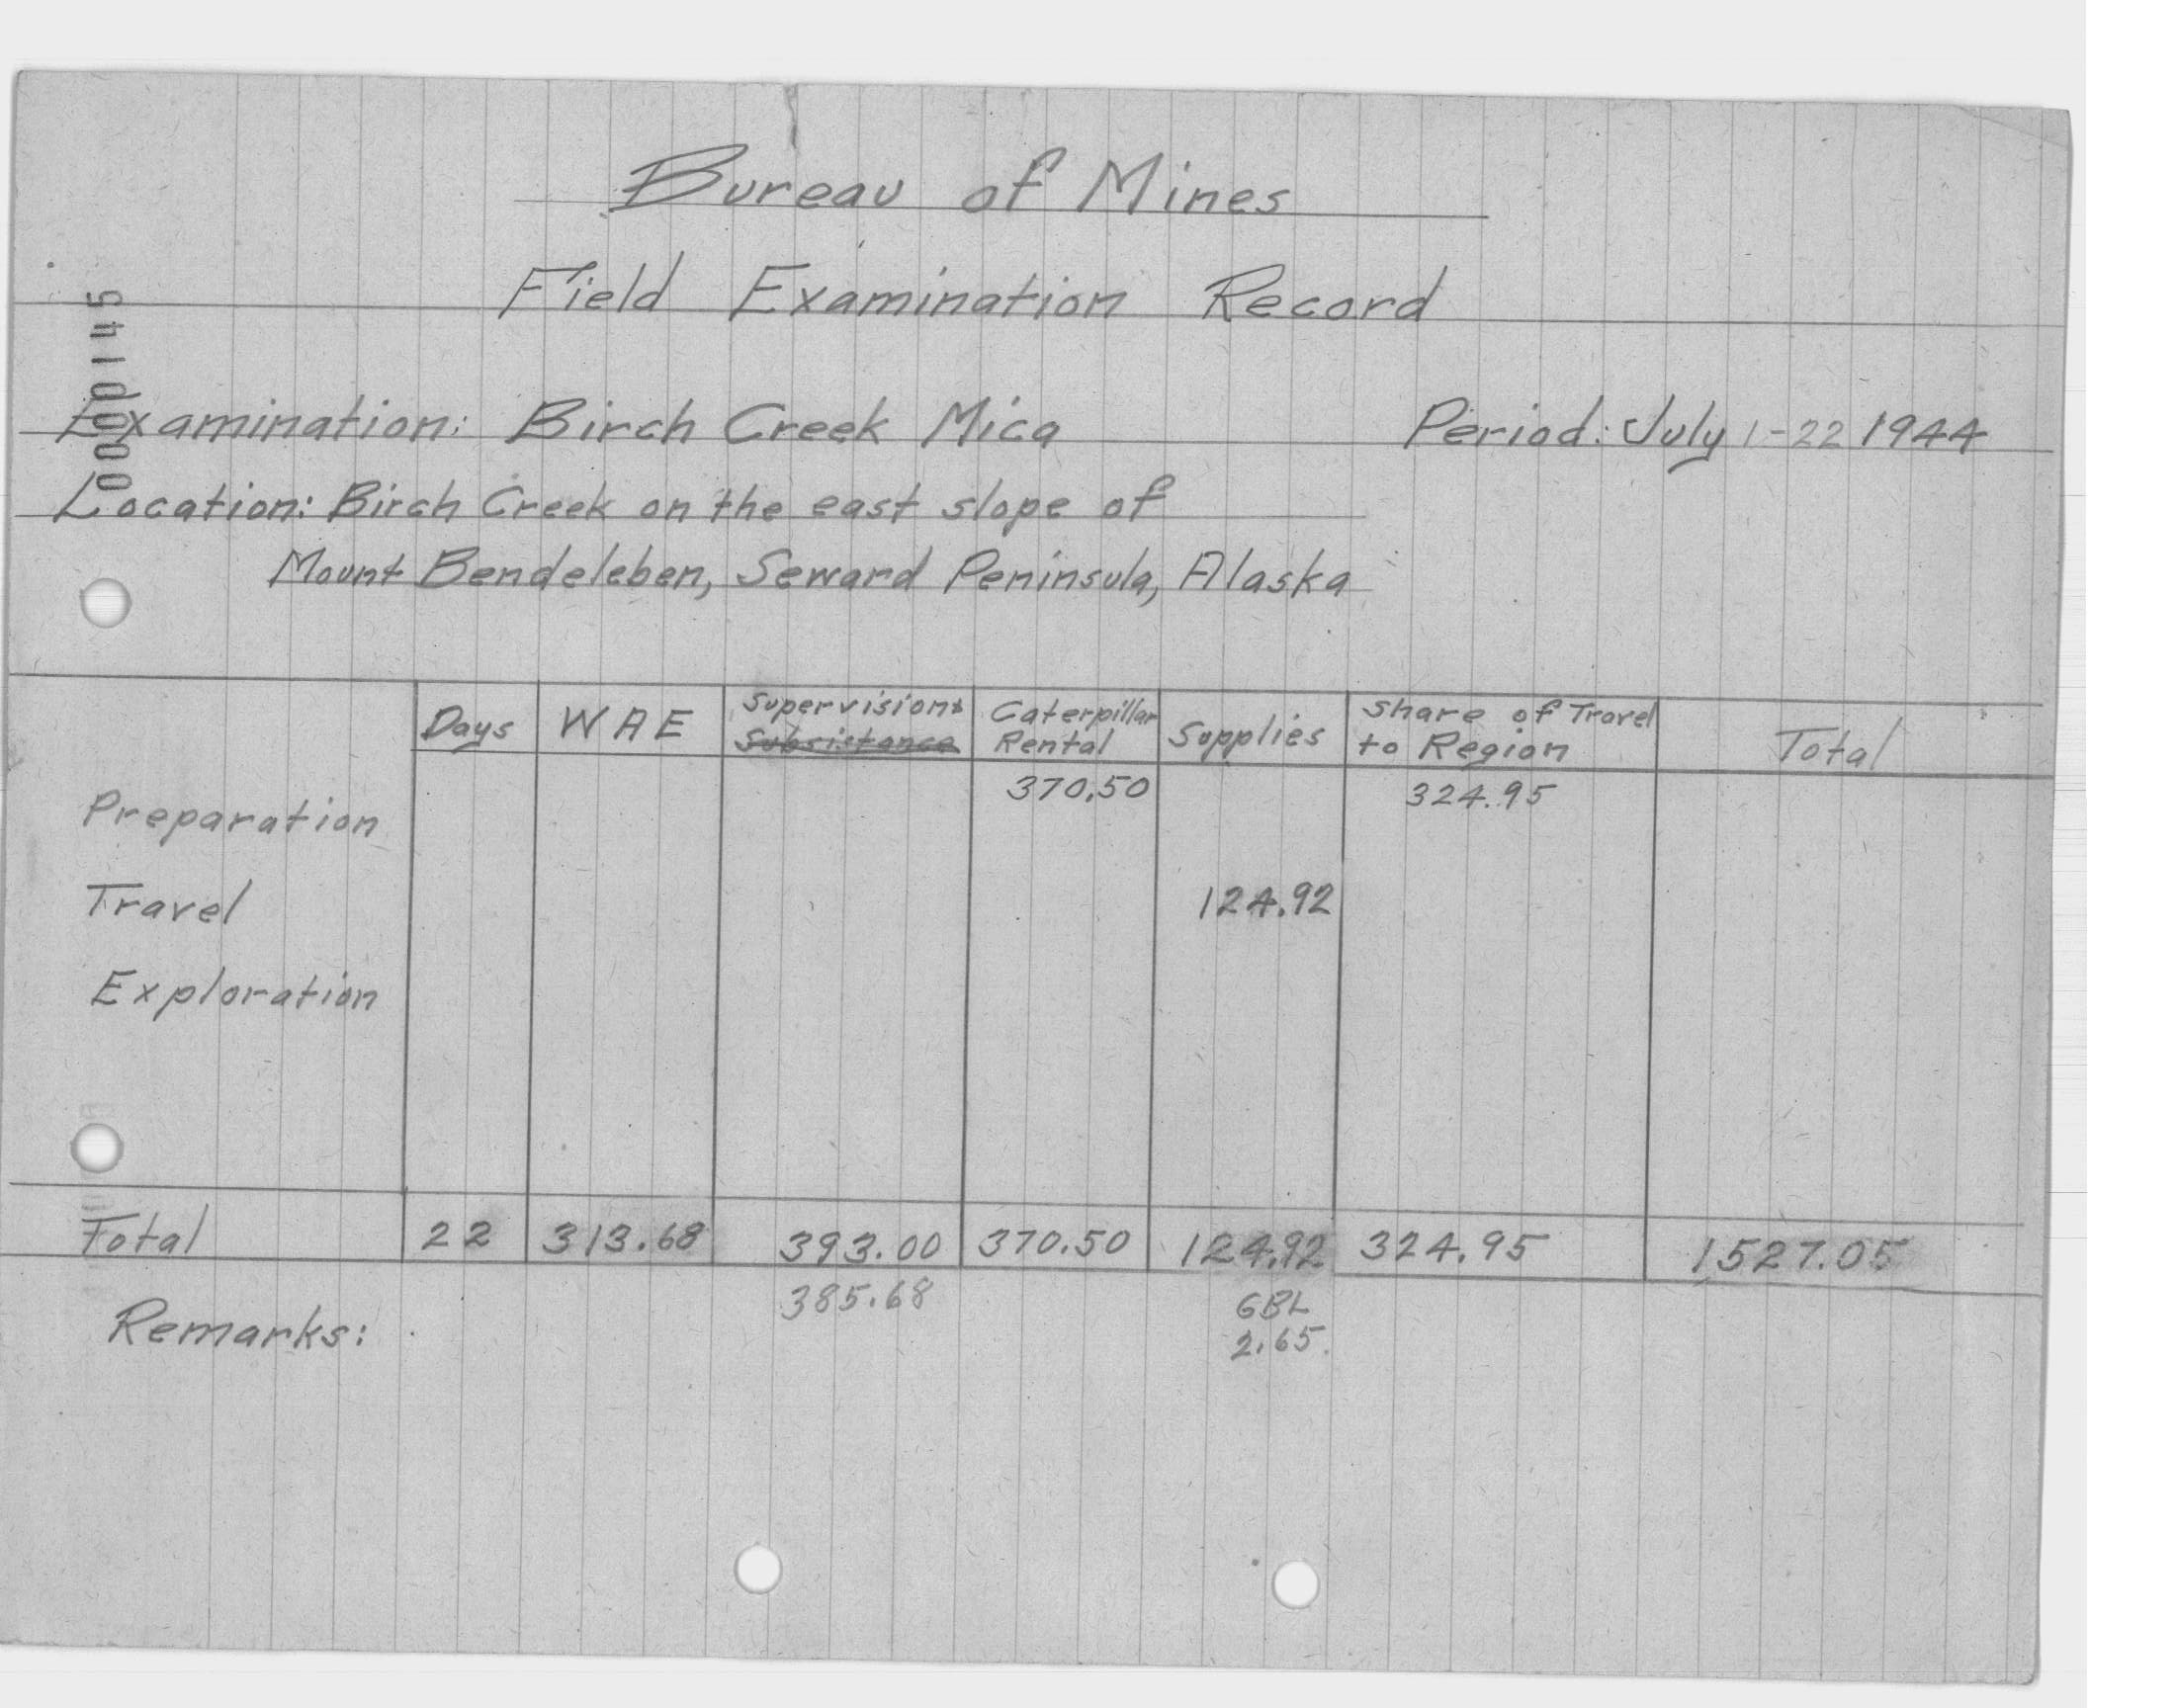 Bureau of Mines
Field Examination Record
0000145
Examination: Birch Creek Mica Period: July 1-22 1944
Location: Birch Creek on the east slope of
Mount Bendeleben, Seward Peninsula, Alaska
Days WAE Supervision & Subsistance Caterpillar Rental Supplies Share of Travel to Region Total
370.50 324.95
Preparation
Travel 124.92
Exploration
Total 22 313.68 393.00 370.50 124.92 324.95 1527.05
385.68 GBL
2.65
Remarks: